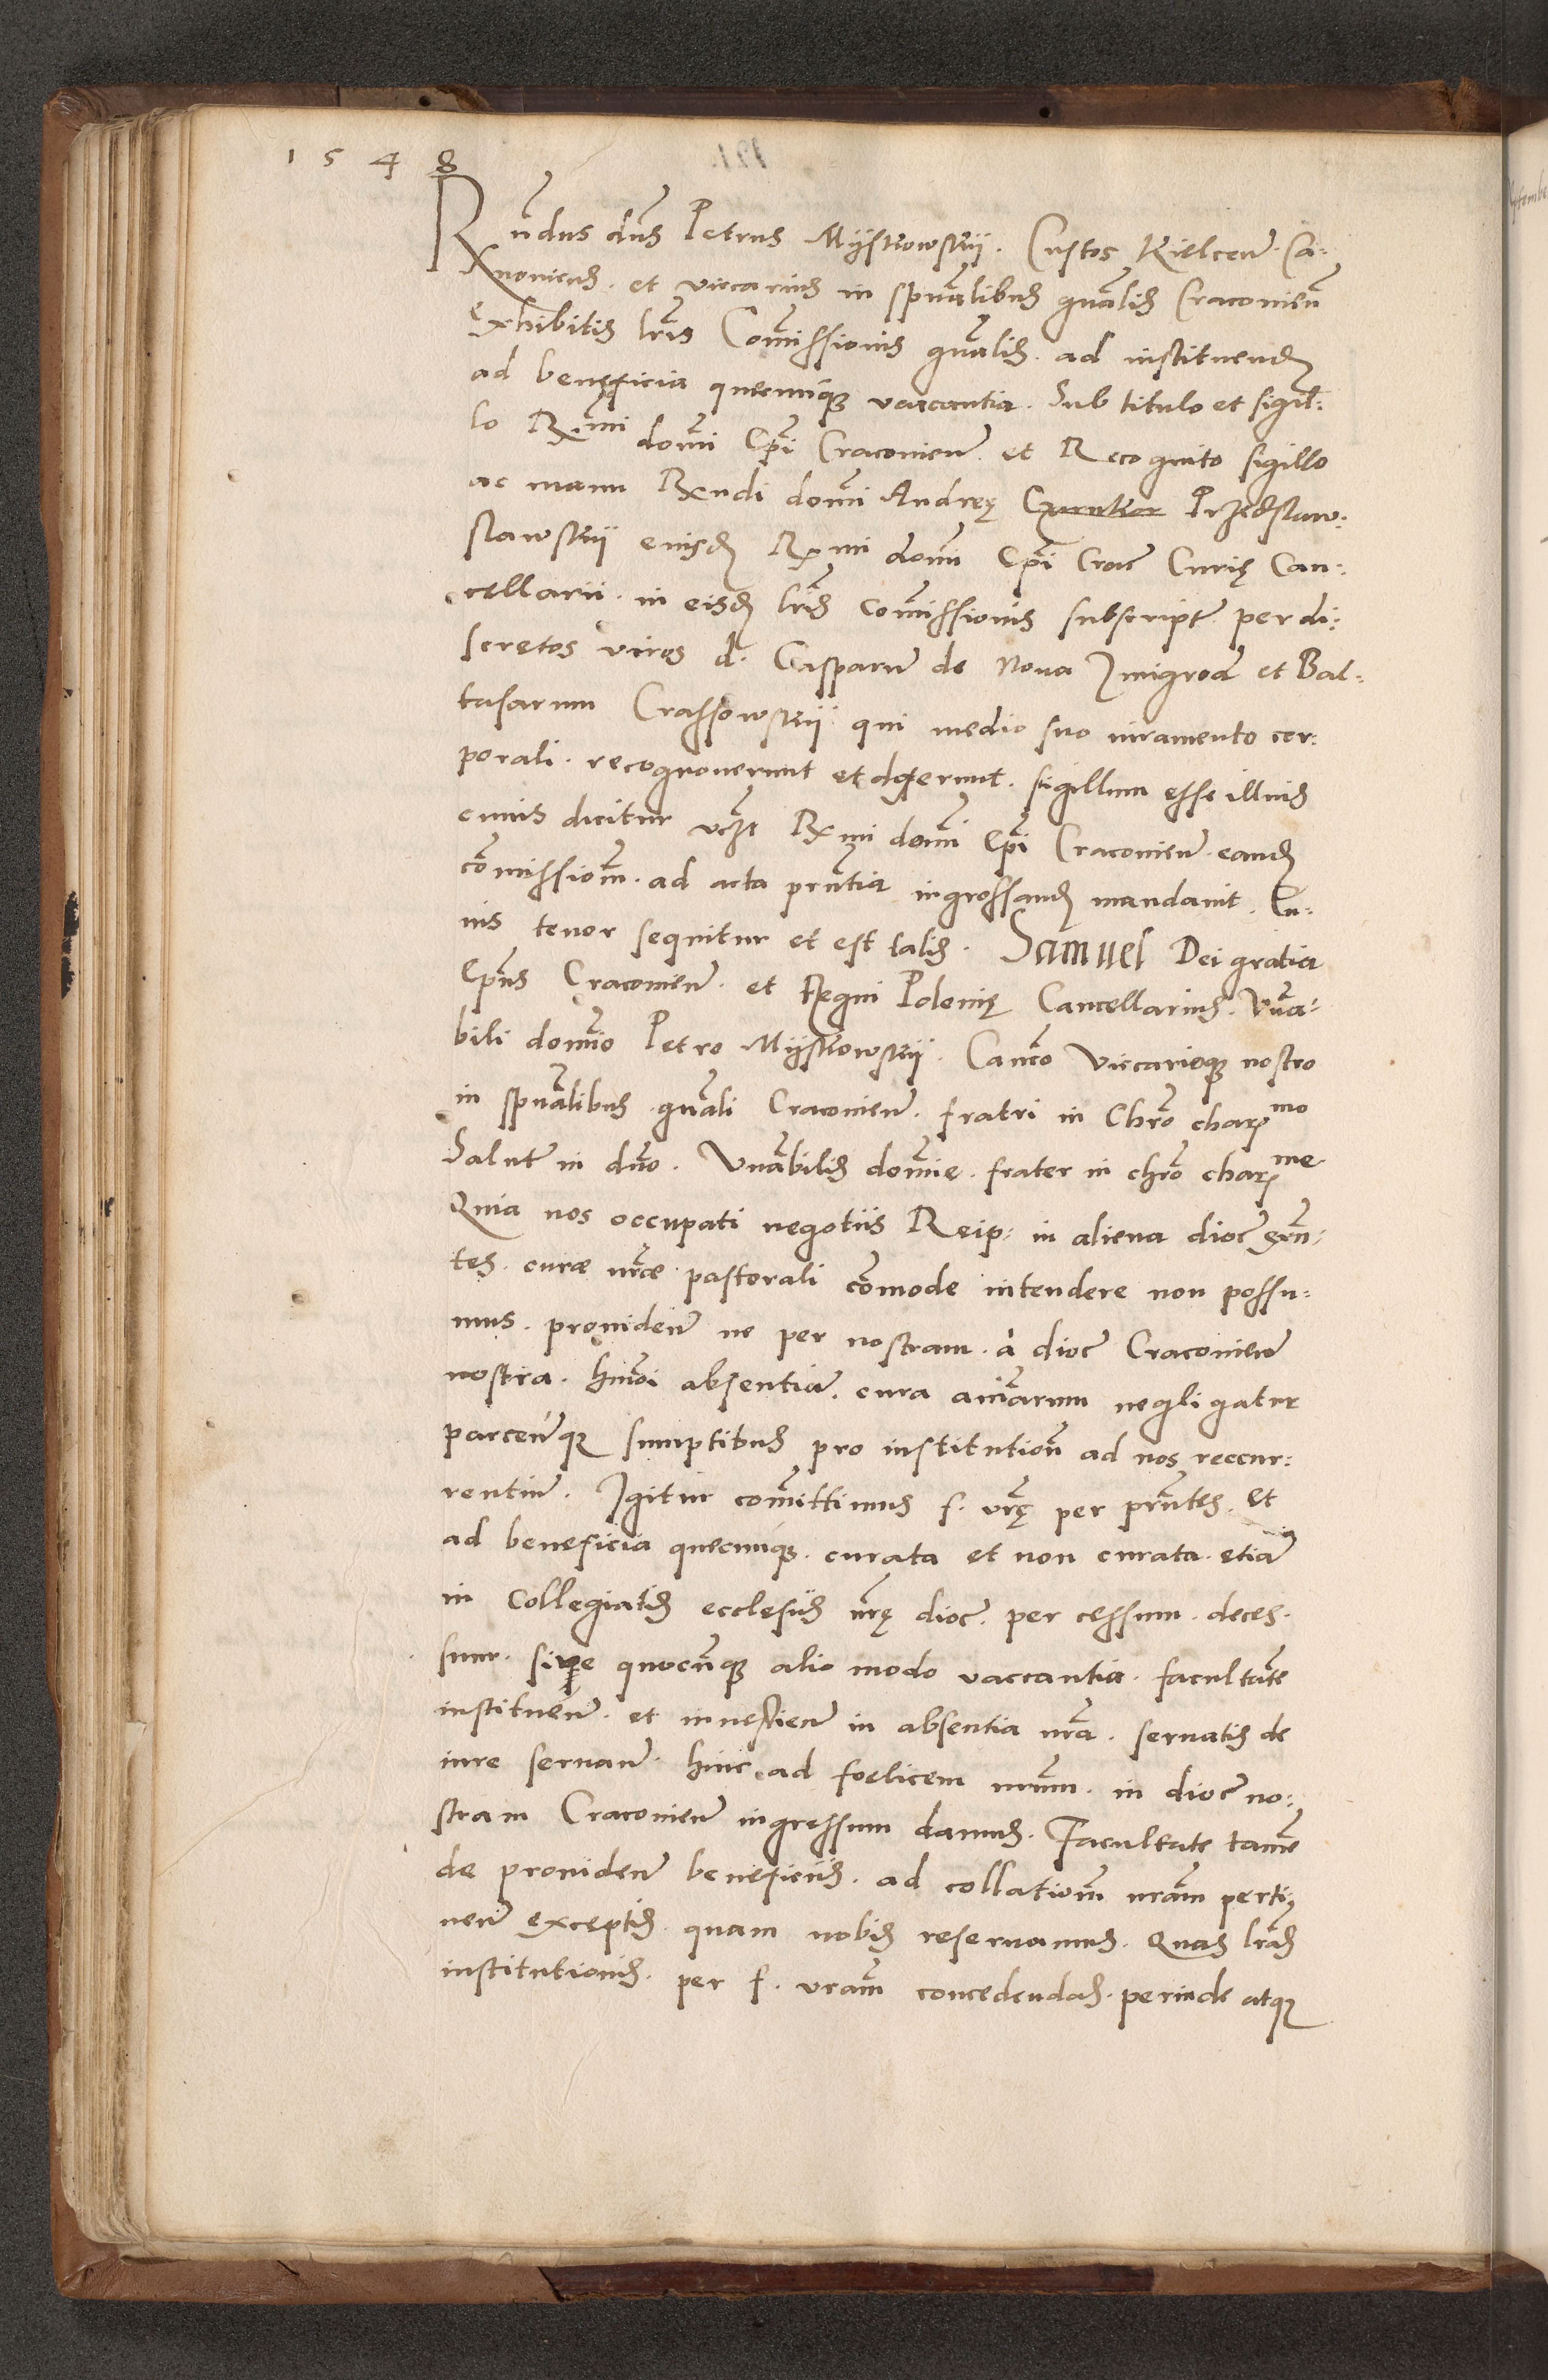 1 5 4 8
Rnd̄us dn̄s Petrus Myskowskij. Custos Kielcen̄. Ca-
nonicus. et viccarius in spūalibus gnālis Cracovien̄
Exhibitis lrīs Com̄issionis gnālis. ad instituend̄
ad beneficia quecunq̄ vaccantia. Sub titulo et sigil-
lo Rmi dom̄i Epī Cracovien̄. et Recognito sigillo
ac manu Rxndi dom̄i Andreę Przedslaw-
slawskij eiusd̄ Rmi dom̄i Epī Crac̄ Curię Can-
cellarii. in eisd̄ lrīs Com̄issionis subscript̄. per di-
scretos viros d. Casparū de Nova Zmigrod̄ et Bal-
tasarum Crassowskij. qui medio suo iuramento cor-
porali. recognoverunt et dixerunt. sigillum esse illius
cuius dicitur vcz̄t Rxmi dom̄i Epī Cracovien̄. eand̄
com̄ission̄. ad acta prn̄tia ingrossand̄ mandavit. Cu-
ius tenor sequitur et est talis. Samuel Dei gratia
Epūs Cracovien̄. et Regni Polonię Cancellarius. Vnā-
bili domīo Petro Myskowskij. Can̄co Viccarioq̄ nostro
in spūalibus gnāli Cracovien̄. fratri in Chrō char̄mo
Salutē in dn̄o. Vnābilis domīe. frater in chrō char̄me
Quia nos occupati negotiis Reip: in aliena dioc̄ grn̄-
tes. curæ nrǣ pastorali com̄ode intendere non possu-
mus. providen̄ ne per nostram. à dioc̄ Cracovien̄
nostra. hmōi absentiā. cura aīarum negligatur
parcen̄q̄ sumptibus pro institution̄ ad nos reccur-
rentiū. Igitur com̄ittimus f. vrę̄ per prn̄tes. et
ad beneficia quecunq̄. curata et non curata. etiā
in Collegiatis ecclesiis nrę̄ dioc̄. per cessum. deces-
sum. sive quocūnq̄ alio modo vaccantia. facultatē
instituen̄. et investien̄ in absentia nrā. servatis de
iure servan̄. hinc ad foelicem nrūm. in dioc̄ no-
stram Cracovien̄ ingressum damus. Facultate tamē
de providen̄ beneficiis. ad collation̄ nrām perti-
nen̄ exceptis. quam nobis reservamus. Quas lrās
institutionis. per f. vrām concedendas. perinde atq̄